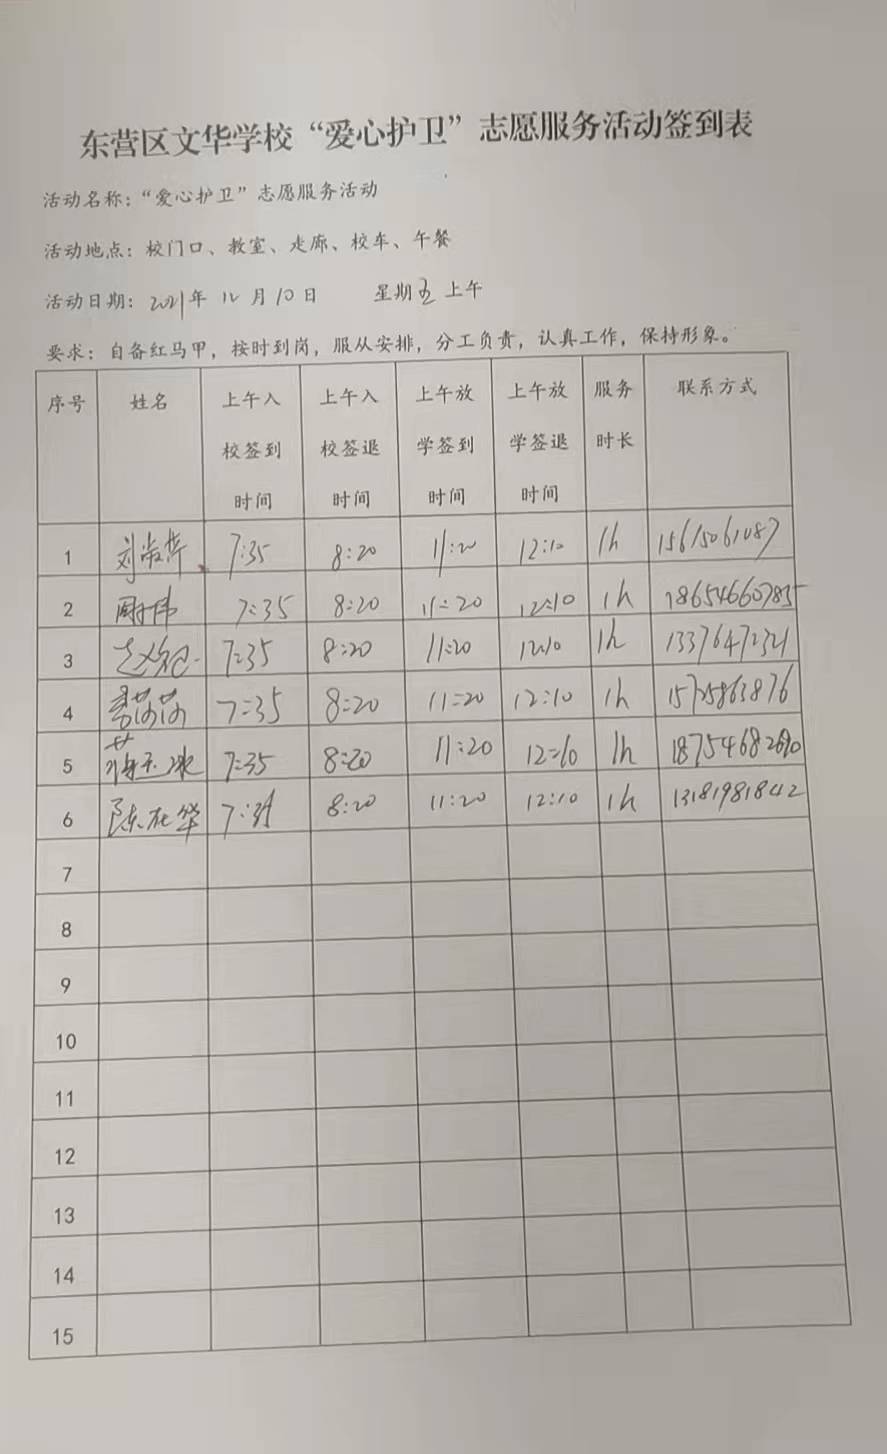 东营区文华学校“爱心护卫”志愿服务活动签到表
活动名称：“爱心护卫”志愿服务活动
活动地点：校门口、教室、走廊、校车、午餐
活动日期：2021年 12月10日 星期五 上午
要求：自备红马甲，按时到岗，服从安排，分工负责，认真工作，保持形象。
序号 姓名 上午入校签到时间 上午入校签退时间 上午放学签到时间 上午放学签退时间 服务时长 联系方式
1 7:35 8:20 11:20 12:10 1h 15615061087
2 周伟 7:35 8:20 11:20 12:10 1h 18654660785
3 7:35 8:20 11:20 12:10 1h
4 7:35 8:20 11:20 12:10 1h 15725863876
5 7:35 8:20 11:20 12:10 1h
6 7:35 8:20 11:20 12:10 1h 13181981842
7
8
9
10
11
12
13
14
15